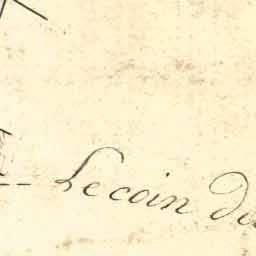 Le coin du